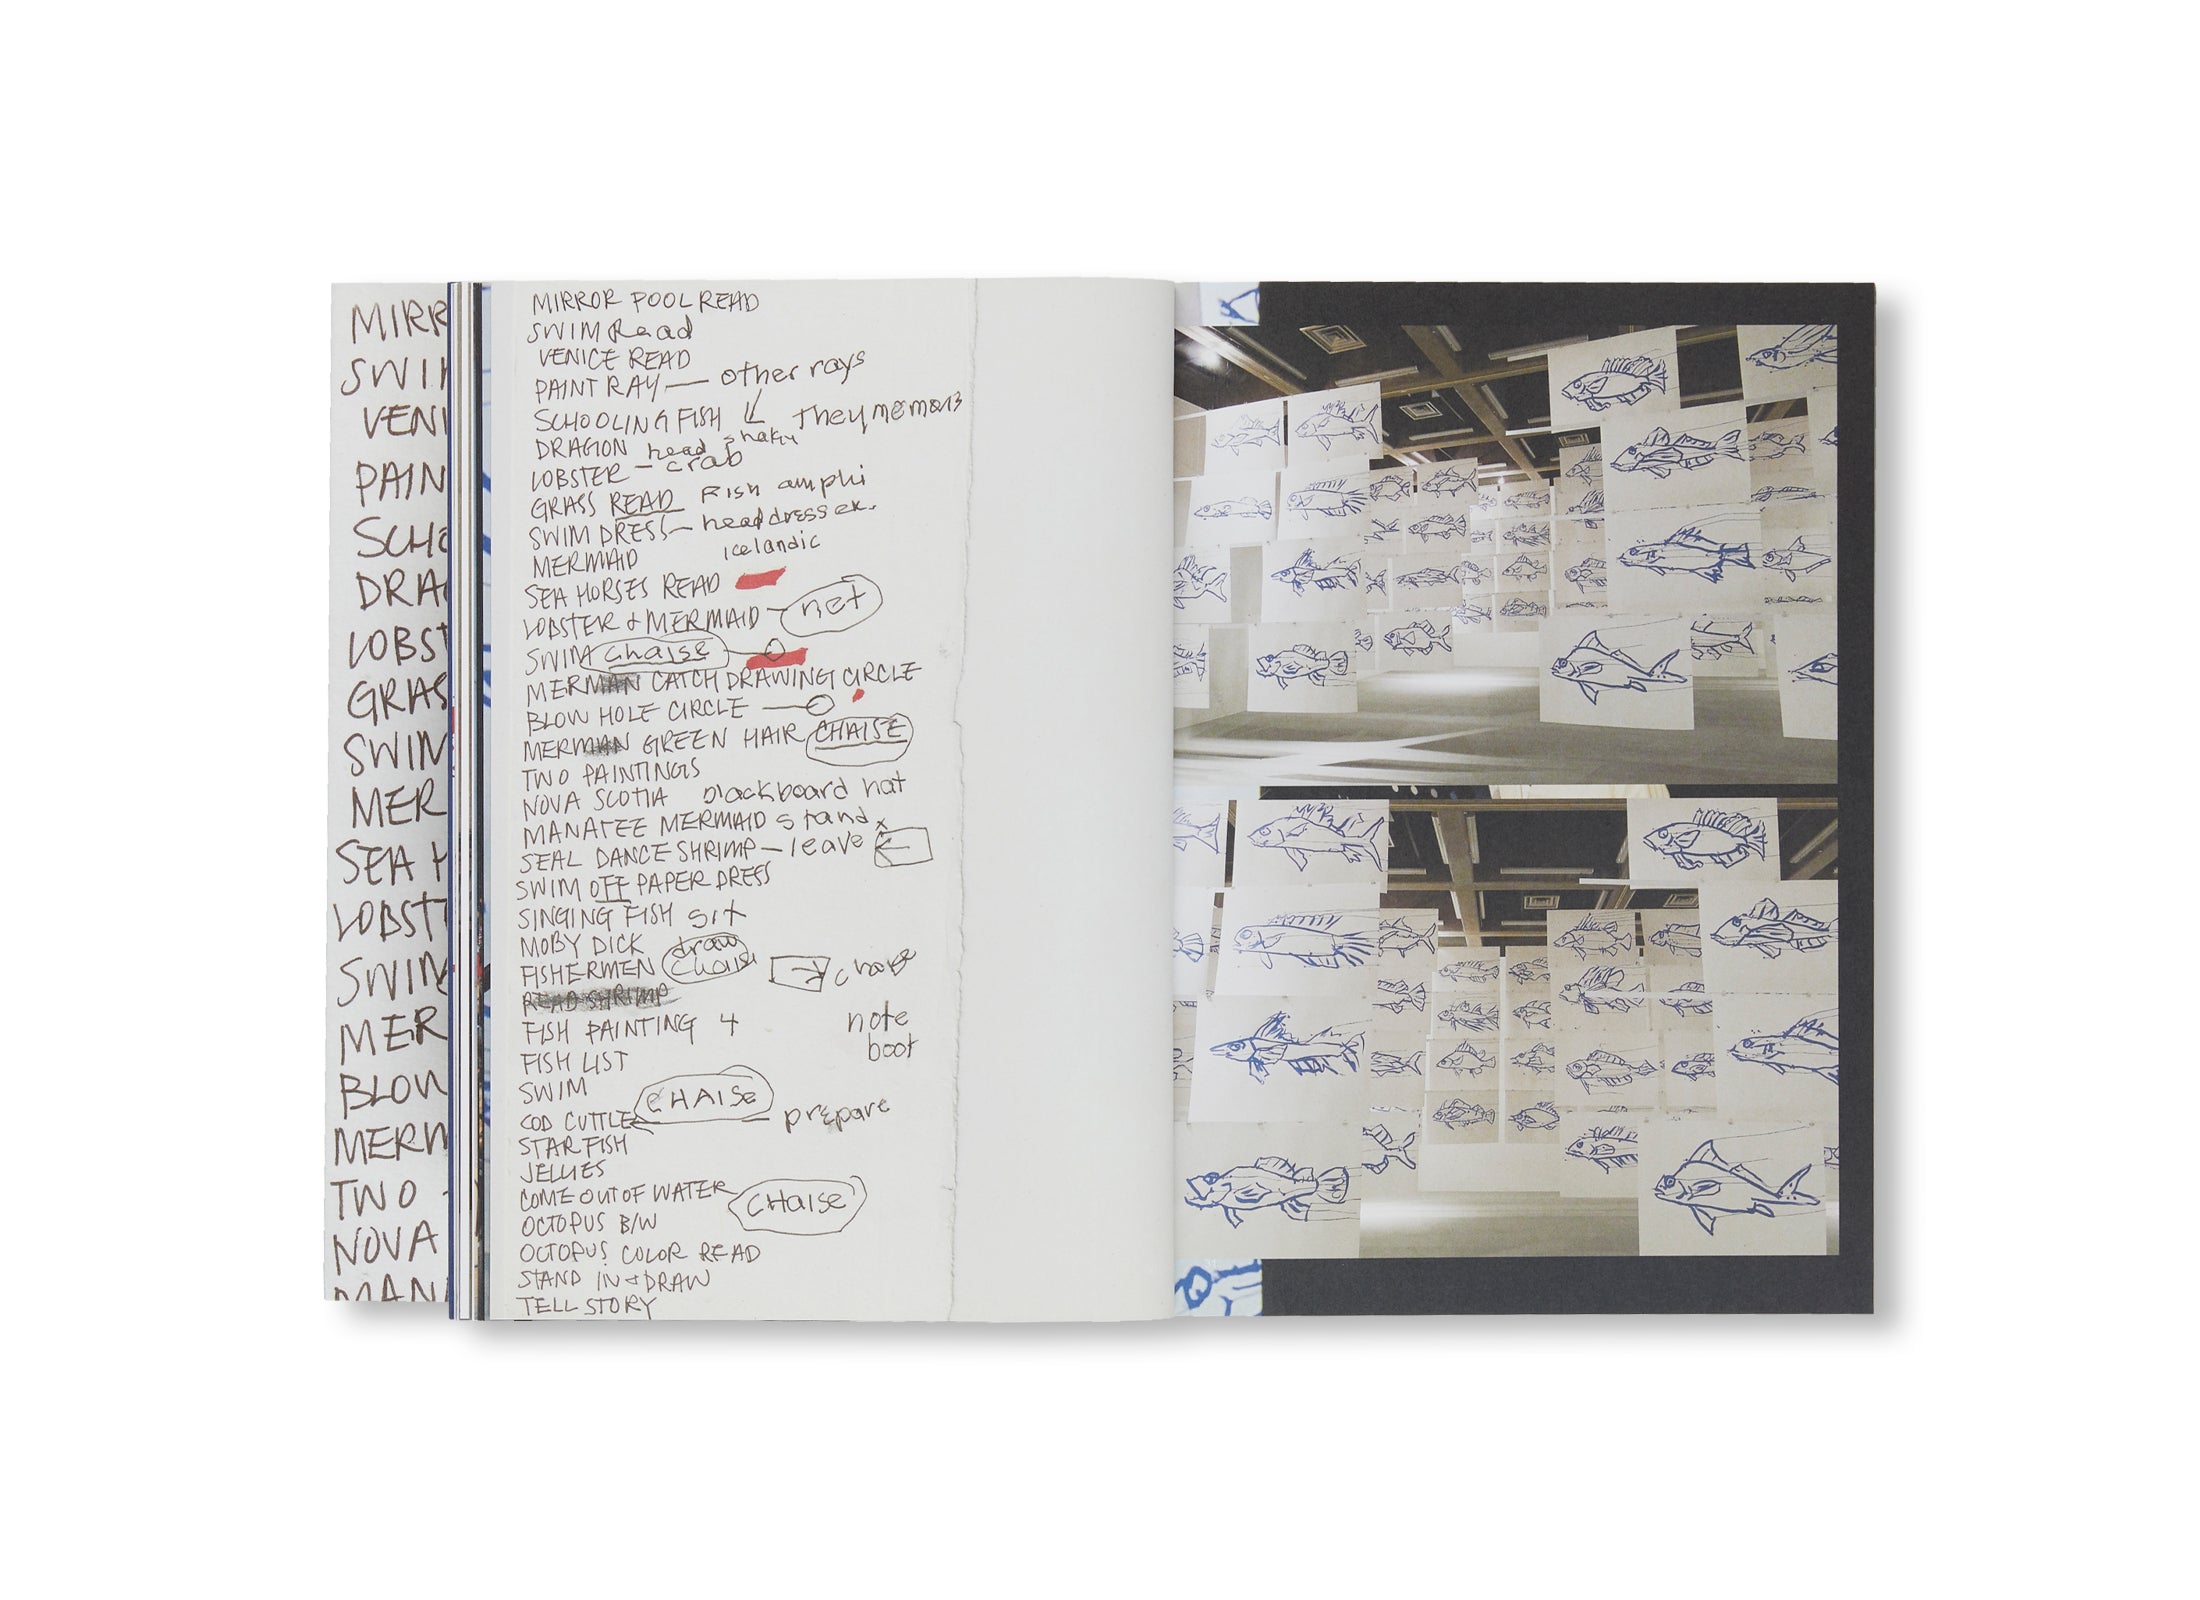 MIRR
SWIM
VENI
PAIN
SCHO
DRA
LOBST
GRAS
SWIM
MER
SEA H
LOBST
SWIM
MER
BLOW
MERM
TWO
NOVA
MANA
MIRROR POOL READ
SWIM Read
VENICE READ
PAINT RAY — other rays
SCHOOLING FISH They
DRAGON head shaky
LOBSTER — crab
GRASS READ Fish amphi
SWIM DRESS — headdress
MERMAID Icelandic
SEA HORSES READ
LOBSTER & MERMAID — net
SWIM chaise
MERMAN CATCH DRAWING CIRCLE
BLOW HOLE CIRCLE
MERMAN GREEN HAIR CHAISE
TWO PAINTINGS
NOVA SCOTIA blackboard hat
MANATEE MERMAID stand x
SEAL DANCE SHRIMP — leave
SWIM OFF PAPER DRESS
SINGING FISH sit
MOBY DICK draw
FISHERMEN chaise
READ SHRIMP
FISH PAINTING 4 note
FISH LIST book
SWIM CHAISE
COD CUTTLE prepare
STARFISH
JELLIES
COME OUT OF WATER CHAISE
OCTOPUS B/W
OCTOPUS COLOR READ
STAND IN & DRAW
TELL STORY